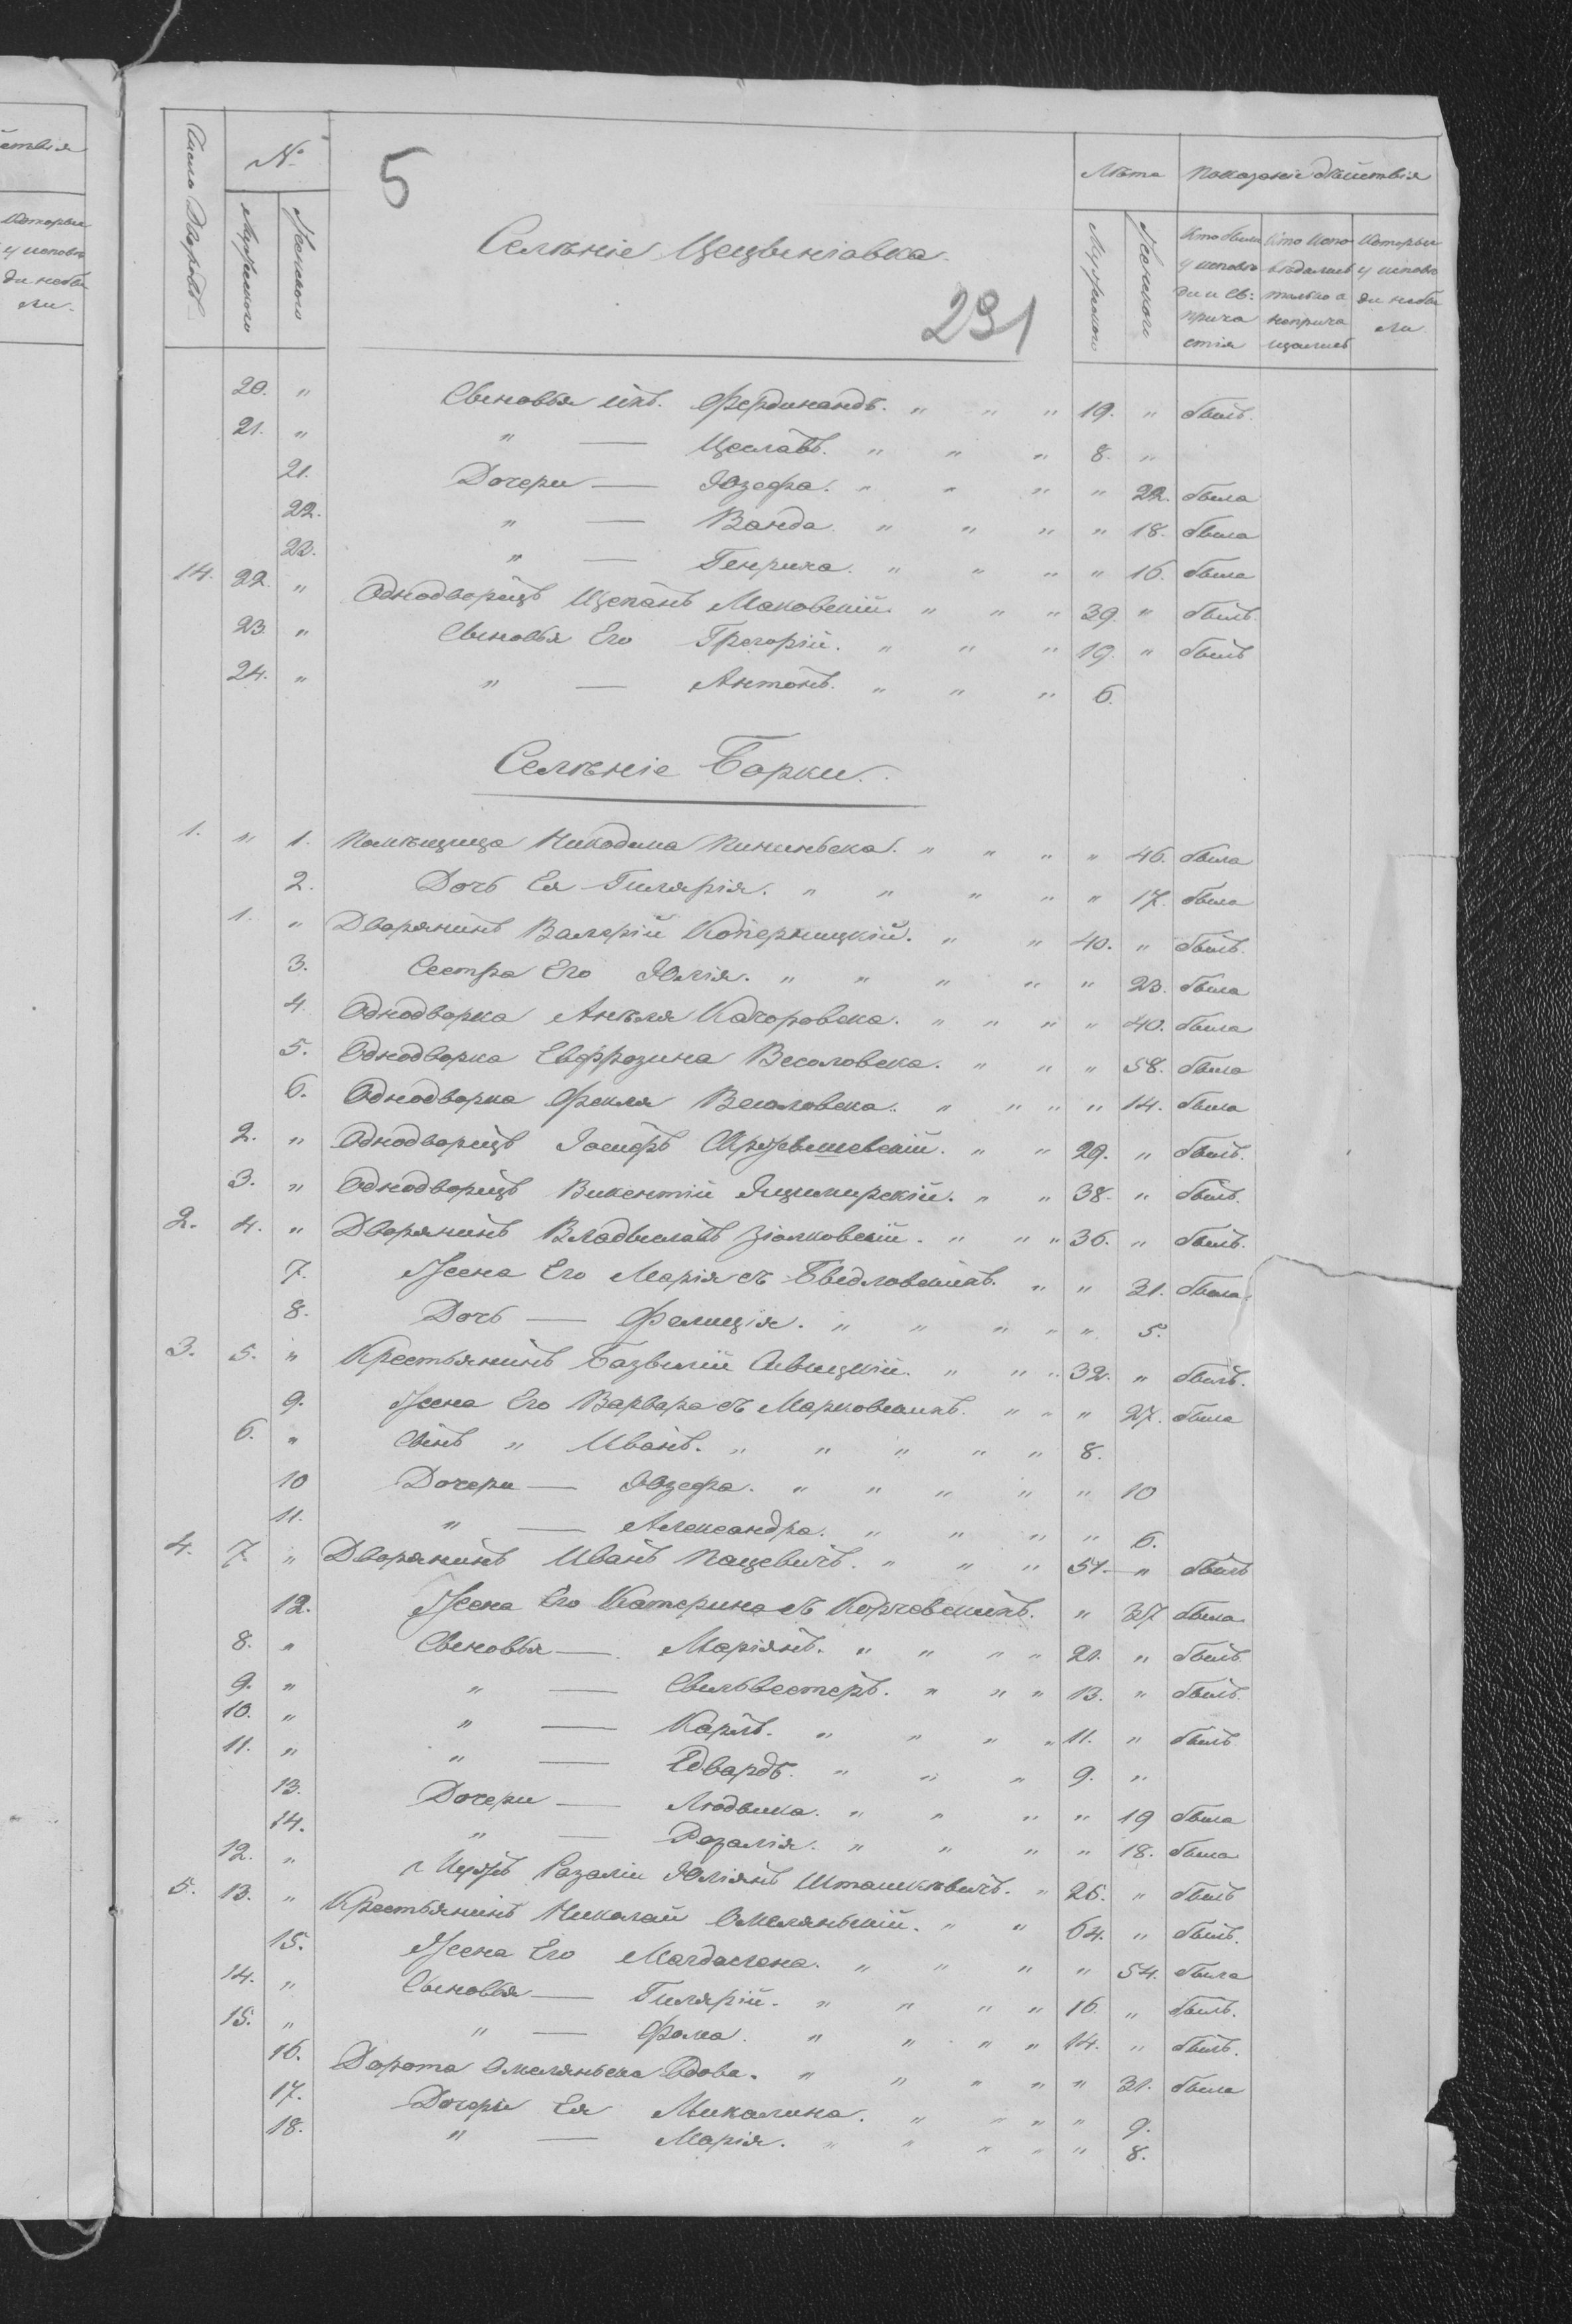 Число Дворовъ | № | 5 | Лѣта | Показаніе дѣйствія
Мужескаго | Женскаго | Мужескаго | Женскаго | Кто были у исповѣди и Св: Причастія | Кто Исповѣдались только а непричащались | Которые у исповѣди небыли
Селѣніе
291
20. " Сыновья ихъ. Фердинандъ. " " " 19. " былъ.
21. " " — Цеславъ. " " " 8. "
21. Дочери — Юзефа. " " " " 22. была
22. " — Ванда. " " " " 18. была
23. " — Генрика. " " " " 16. была
14. 22. " Однодворецъ Щепанъ Маковскій " " " 39. " былъ.
23. " Сыновья Его Грегорій. " " " 19. " былъ
24. " " — Антонъ. " " " 6.
Селѣніе Борки.
1. " 1. Помѣщица Никодима Пининьска. " " " " 46. была
2. Дочь Ея Гилярія. " " " " " 17. была
1. " Дворянинъ Валерій Коперницкій. " " 40. " былъ.
3. Сестра Его Юлія. " " " " " 23. была
4. Однодворка Анѣля Качоровска. " " " " 40. была
5. Однодворка Евфрозина Весоловска. " " " 58. была
6. Однодворка Фекля Весоловска. " " " " 14. была
2. " Однодворецъ Іосифъ " " 29. " былъ.
3. " Однодворецъ Викентій Яцимирскій. " " 38. " былъ.
2. 4. " Дворянинъ Владыславъ Зіолковскій. " " " 36. " былъ.
7. Жена Его Марія съ Быдловскихъ. " " 31. была.
8. Дочь — Фелиція. " " " " " 5.
3. 5. " Крестьянинъ Базылій Савицкій. " " " 32. " былъ.
9. Жена Его Варвара съ Марковскихъ. " " " 27. была
6. " Сынъ " Иванъ. " " " " " 8.
10 Дочери — Юзефа. " " " " " 10
11. " — Александра. " " " " 6.
4. 7. " Дворянинъ Иванъ Пацевичъ. " " " 51. " былъ
12. Жена Его Катерина съ Корчевскихъ. " 37 была
8. " Сыновья — Маріянъ. " " " " 21. " былъ
9. " " — Сыльвестеръ. " " " 13. " былъ.
10. " " — Карлъ. " " " " 11. " былъ
11. " " — Едвардъ. " " " 9. "
13. Дочери — Людвика. " " " " 19 была
14. " — Розалія. " " " " 18. была
12. " Мужъ Розаліи Юліянъ Шташкѣвичъ. " 26. " былъ
5. 13. " Крестьянинъ Николай Омеляньскій. " " 64. " былъ.
15. Жена Его Магдалена. " " " " 54. была
14. " Сыновья — Гилярій. " " " " 16. " былъ.
15. " " — Фома. " " " " 14. " былъ.
16. Дорота Омеляньска Вдова. " " " " " 31. была
17. Дочери Ея Микалина. " " " " 9.
18. " — Марія. " " " " " 8.